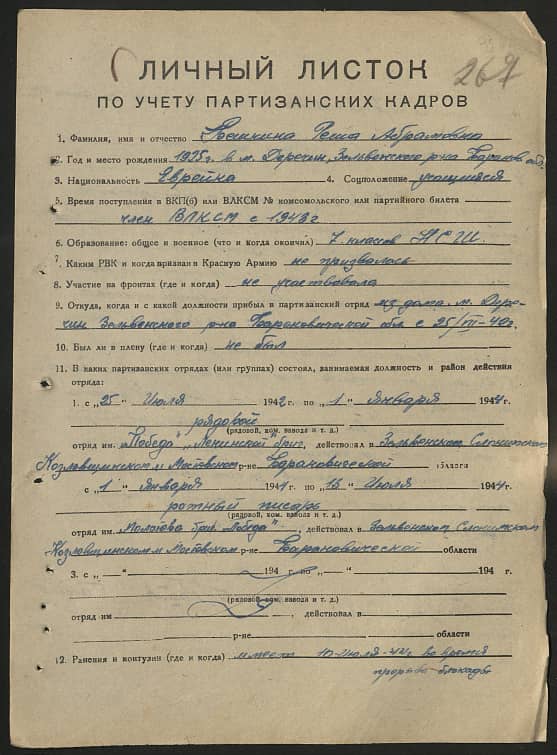 267
ЛИЧНЫЙ ЛИСТОК
ПО УЧЕТУ ПАРТИЗАНСКИХ КАДРОВ
1. Фамилия, имя и отчество Абрамовна
2. Год и место рождения 1925г. в м. Деречин, Зельвенского р-на Баранов. обл.
3. Национальность Еврейка 4. Соцположение учащийся
5. Время поступления в ВКП(б) или ВЛКСМ № комсомольского или партийного билета
член ВЛКСМ с 1943г
6. Образование: общее и военное (что и когда окончил) 7 классов НСШ.
7. Каким РВК и когда призван в Красную Армию не призвалась
8. Участие на фронтах (где и когда) не участвовала
9. Откуда, когда и с какой должности прибыл в партизанский отряд из дома. м. Дере-
чин Зельвенского р-на Барановической обл с 25/VII-42г.
10. Был ли в плену (где и когда) не был
11. В каких партизанских отрядах (или группах) состоял, занимаемая должность и район действия
отряда:
1. с „25" Июля 1942 г. по „1" января 1944 г.
рядовой
(рядовой, ком. взвода и т. д.)
отряд им. „Победа" „Ленинской" бриг, действовал в Зельвенском Слонимском
Козловщинском и Мостовском р-не Барановической области
с „1" января 1944 г. по „13" Июля 1944 г.
ротный писарь
(рядовой, ком. взвода и т. д.)
отряд им. Молотова бриг. „Победа", действовал в Зельвенском Слонимском
Козловщинском и Мостовском р-не Барановической области
3. с „—" 194 г. по „—" 194 г.
(рядовой, ком. взвода и т. д.)
отряд им — , действовал в
р-не области
12. Ранения и контузии (где и когда) имеет Июля-42г во время
прорыва блокады